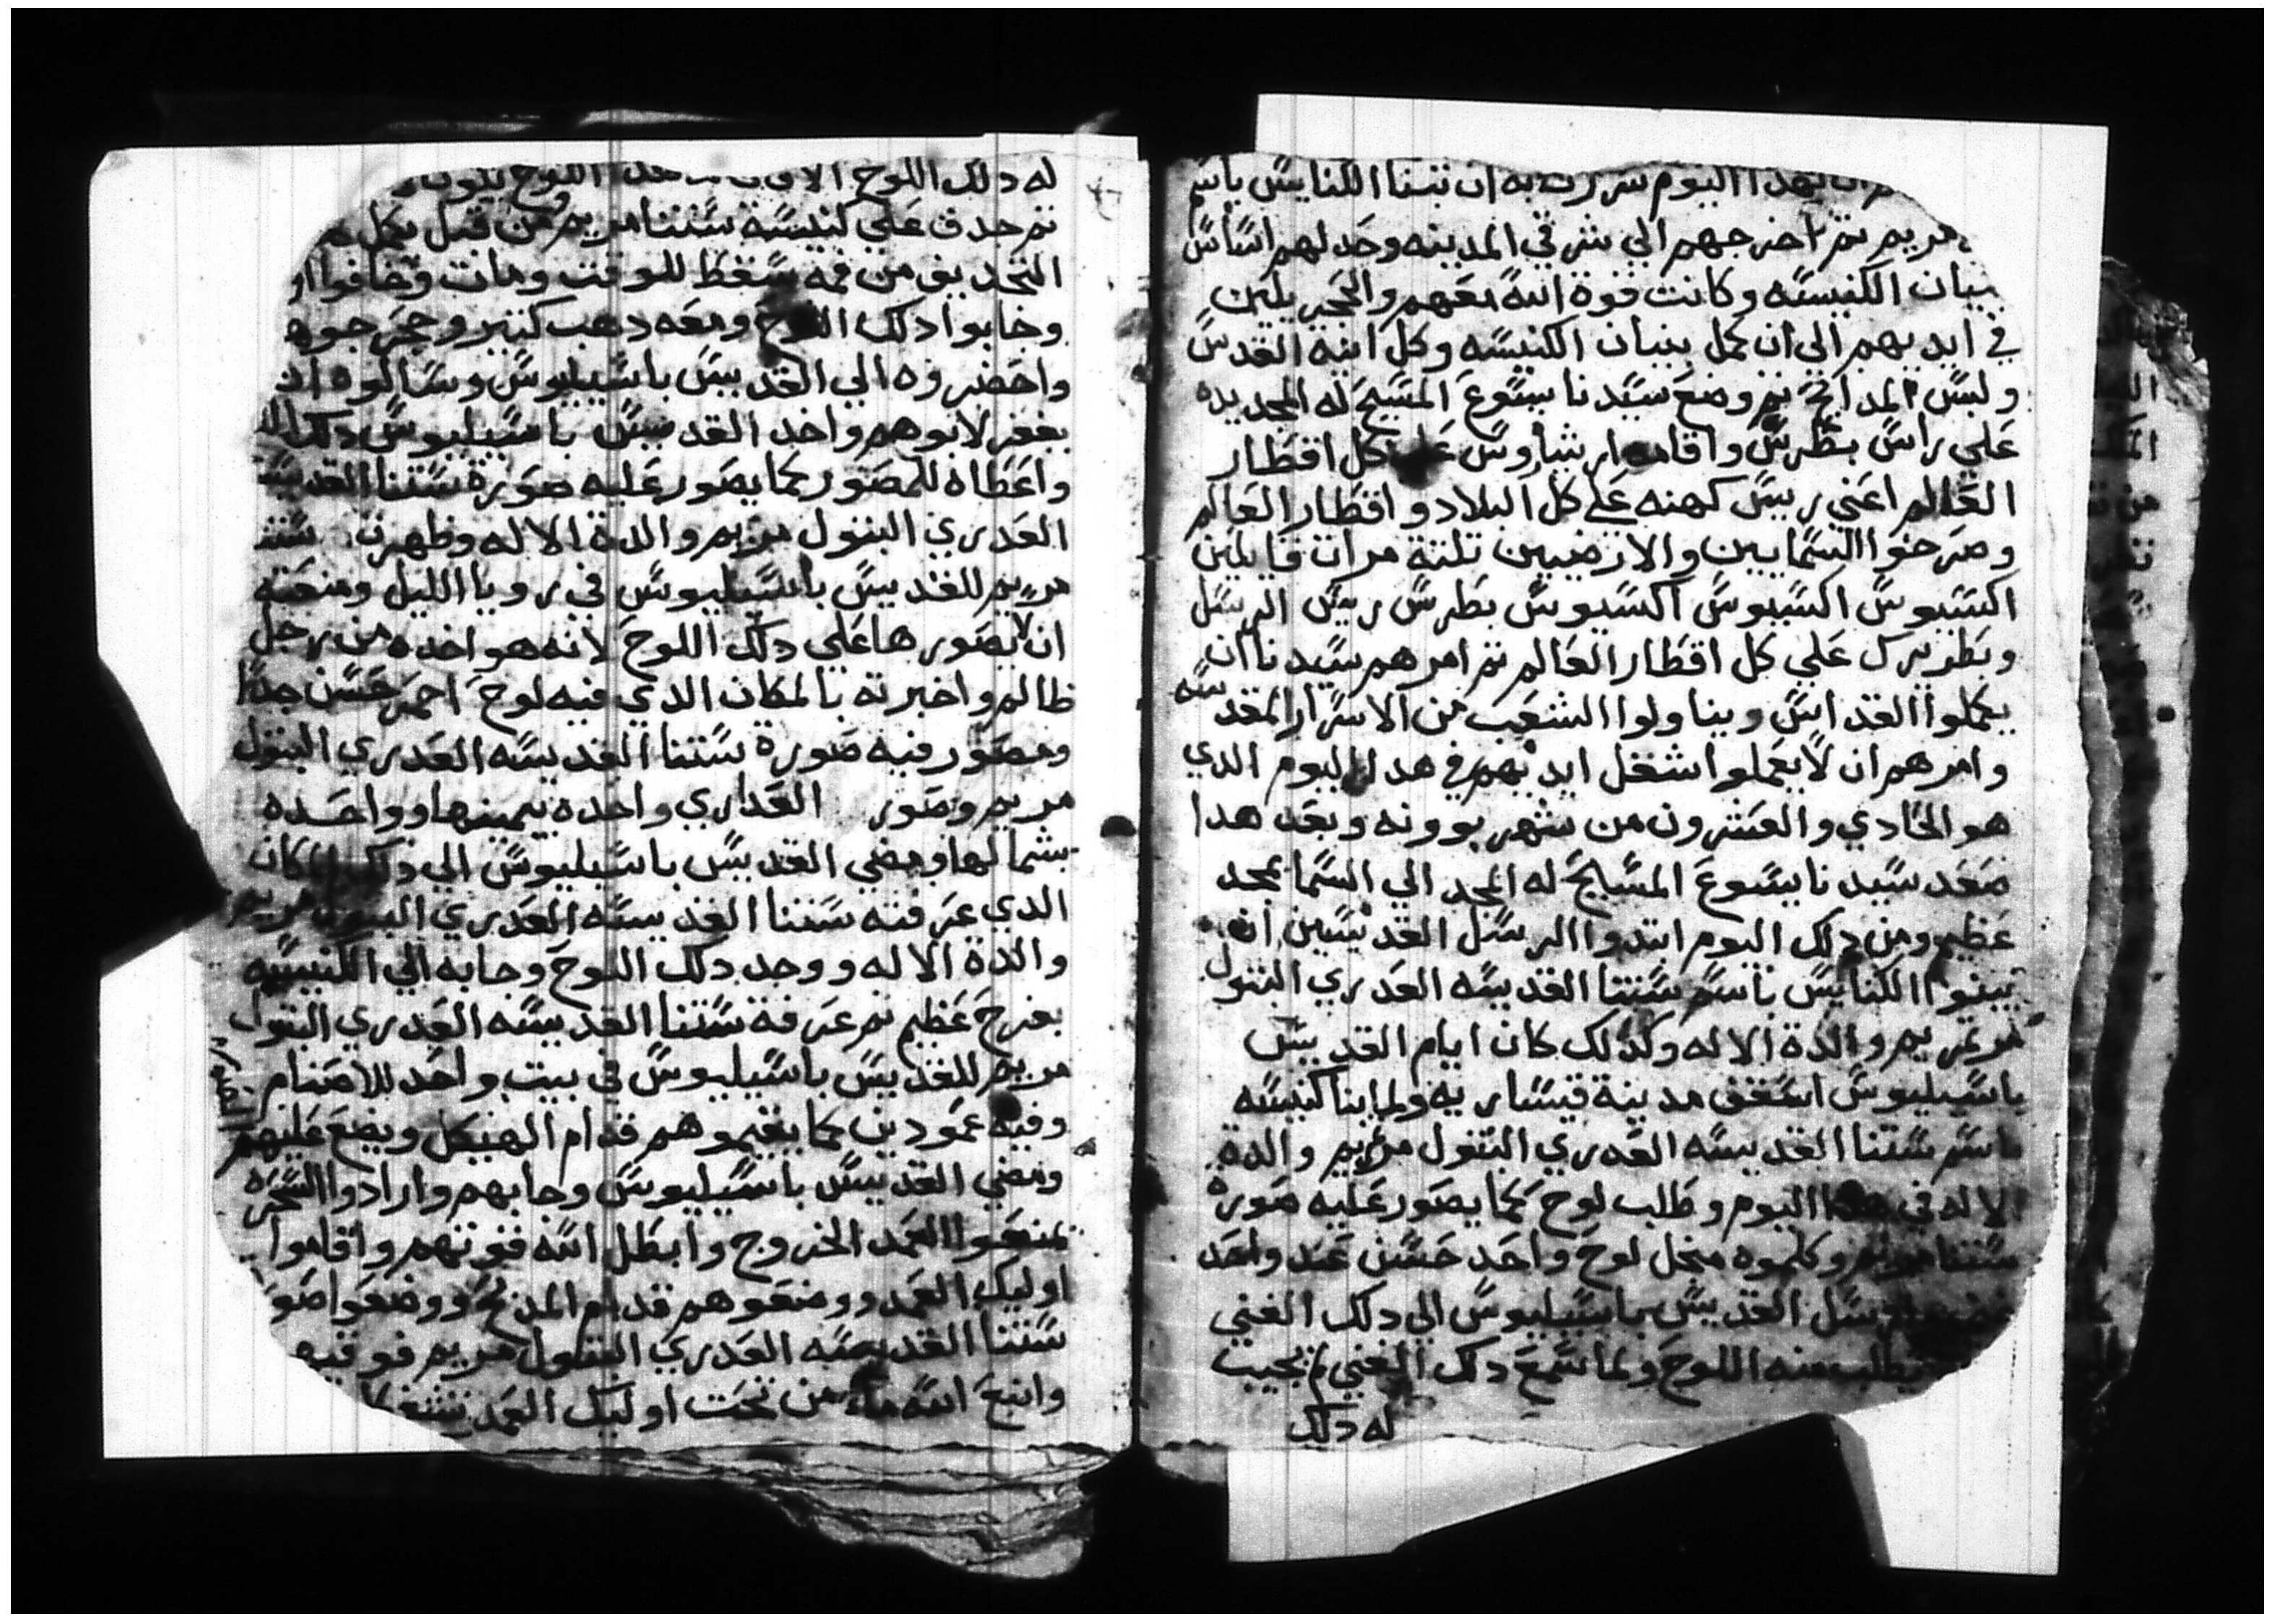 بهدا اليوم سررت به ان تبتنا الكنايس باسم
مريم تم اخرجهم الي شرقي المدينه وحد لهم اساس
بنيان الكنيسه وكانت قوة الله معهم والحجر يلين
في ايديهم الي ان كمل بنيان الكنيسه وكل انية القدس
ولبس المدابح تم وضع سيدنا يسوع المسيح له المجد يده
علي راس بطرس واقامه ارشياروس علي كل اقطار
العالم اعني رييس كهنه علي كل البلاد و اقطار العالم
وصرخوا السمايين والارضيين تلتة مرات قايلين
اكسيوس اكسيوس اكسيوس بطرس رييس الرسل
وبطريرك علي كل اقطار العالم تم امرهم سيدنا ان
يكملوا القداس ويناولوا الشعب من الاسرار المقدسه
وامرهم ان لا يعملوا شغل ايديهم في هدا اليوم الدي
هو الحادي والعشرون من شهر بوونه وبعد هدا
صعد سيدنا يسوع المسيح له المجد الي السما بمجد
عظيم ومن دلك اليوم ابتدوا الرسل القديسين ان
يبنوا الكنايس باسم ستنا القديسه العدري البتول
مرتمريم والدة الاله وكدلك كان ايام القديس
باسيليوس اسقف مدينة قيساريه ولما بنا كنيسه
باسم ستنا القديسه العدري البتول مريم والدة
الاله في هدا اليوم وطلب لوح كما يصور عليه صورة
ستنا مريم وكلموه منجل لوح واحد حسن عند واحد
ارسل القديس باسيليوس الي دلك الغني
يطلب منه اللوح ولما سمع دلك الغني لم يجيب
له دلك
له دلك اللوح
تم جدف علي كنيسة ستنا مريم ومن قبل يكمل
التجديف من فمه سقط للوقت ومات وخافوا
وجابوا دلك اللوح ومعه دهب كتير وحجر جوهر
واحضروه الي القديس باسيليوس وسالوه ان
يغفر لابوهم واخد القديس باسيليوس دلك
واعطاه للمصور كما يصور عليه صورة ستنا القديسه
العدري البتول مريم والدة الاله وظهرت ستنا
مريم للقديس باسيليوس في رويا الليل ومنعته
ان لا يصورها علي دلك اللوح لانه هو اخده من رجل
ظالم واخبرته بالمكان الدي فيه لوح احمر حسن جدا
ومصور فيه صورة ستنا القديسه العدري البتول
مريم وصور العداري واحده بيمينها وواحده
بشمالها ومضي القديس باسيليوس الي دلك المكان
الدي عرفته ستنا القديسه العدري البتول مريم
والدة الاله ووجد دلك اللوح وجابه الي الكنيسه
بفرح عظيم تم عرفة ستنا القديسه العدري البتول
مريم للقديس باسيليوس في بيت واحد للاصنام
وفيه عمودين كما يقيموهم قدام الهيكل ويضع عليهم
ومضي القديس باسيليوس وجابهم وارادوا السحره
يمنعوا العمد الخروج وابطل الله قوتهم واقاموا
اوليك العمد ووضعوهم قدام المدبح ووضعوا
ستنا القديسه العدري البتول مريم فوقيهم
وانبع الله ماء من تحت اوليك العمد